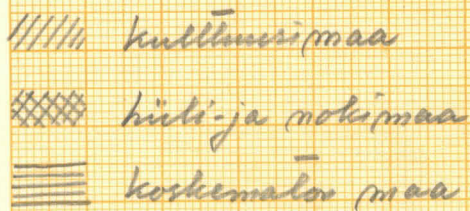 kulttuurimaa
hiili-ja nokimaa
koskematon maa